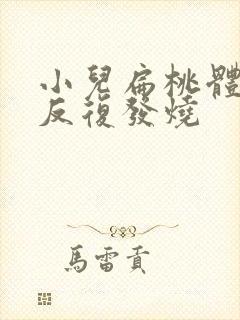 小兒扁桃體
反復發燒
馬雷貢